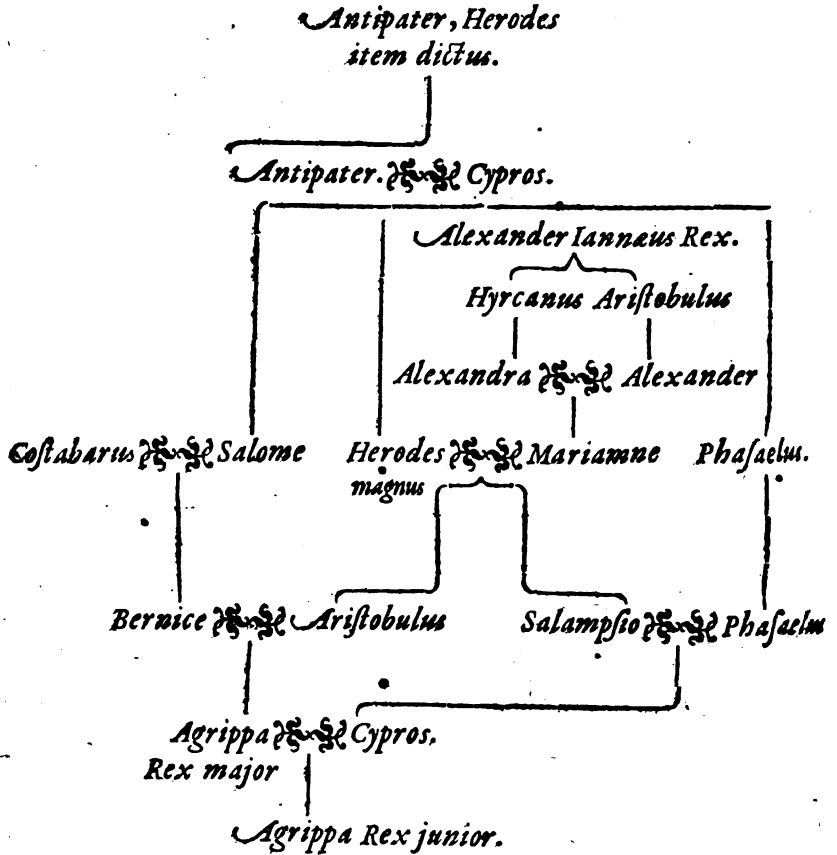 Antipater, Herodes
item dictus.
Antipater. Cypros.
Alexander Iannæus Rex.
Hyrcanus Ariſtobulus
Alexandra Alexander
Coſtabarus Salome Herodes Mariamne Phaſaelus.
magnus
Bernice Ariſtobulus Salampſio Phaſaelus
Agrippa Cypros.
Rex major
Agrippa Rex junior.